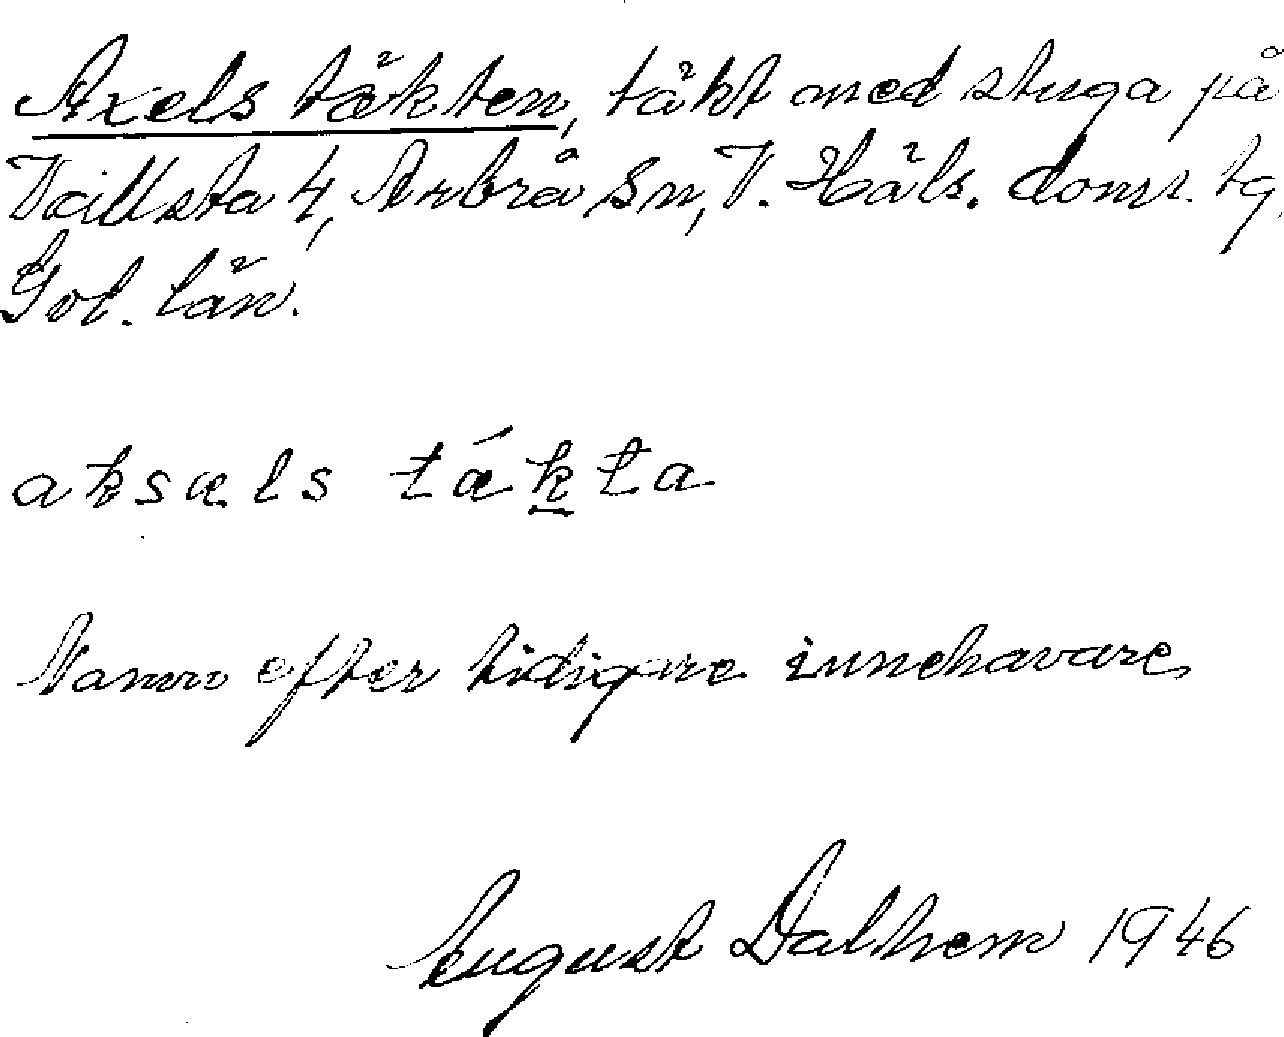 Axels täkten, täkt med stuga på
Vallsta 4, Arbrå sn, V. Häls. doms. tg,
Gvl. län.
aksæls tǽkta
Namn efter tidigare innehavare
August Dalhem 1946